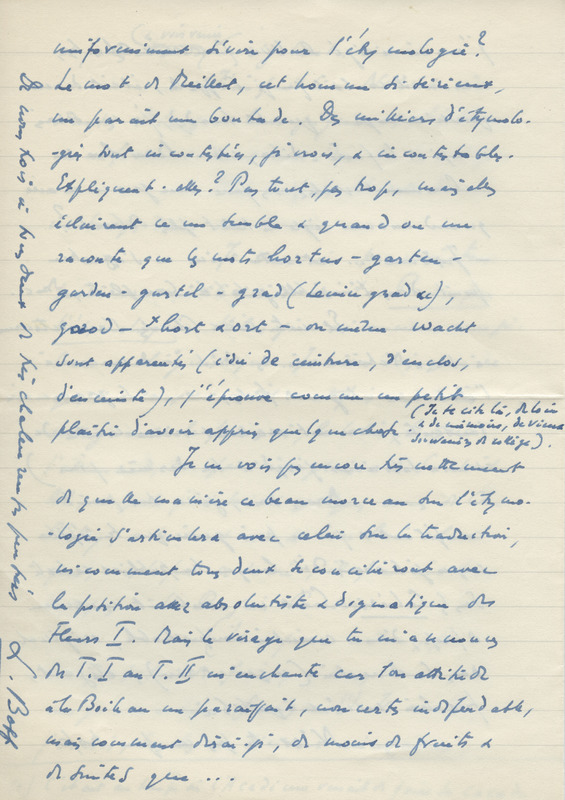 uniforminent sévère pour l'étymologie?
Le mot de Meillet, cet homme si sérieux,
me paraît une boutade. Des milliers d'étymolo-
-gies sont incontestées, je crois, & incontestables.
Expliquent-elles? Pas tout, pas trop, mais elles
éclairent ce me semble & quand on me
raconte que les mots hortus - garten -
garden - gastel - grad (Leningrad &c),
gorod - *hort & ort - ou même wacht
sont apparentés (idée de ceinture, d'enclos,
d'enceinte), j'éprouve comme un petit
plaisir d'avoir appris quelque chose.
(Je te cite là, de loin
& de mémoire, de vieux
souvenirs de collège).
Je ne vois pas encore très nettement
de quelle manière ce beau morceau sur l'étymo-
-logie s'articulera avec celui sur la traduction,
ni comment tous deux se concilieront avec
la position assez absolutiste & dogmatique des
Fleurs I. Mais le virage que tu m'annonces
du T. I au T. II m'enchante car son attitude
à la Boileau me paraissait, non certes indéfendable,
mais comment dirai-je, de moins de fruits &
de suites que ...
De nous trois à tous deux de très chaleureuses pensées